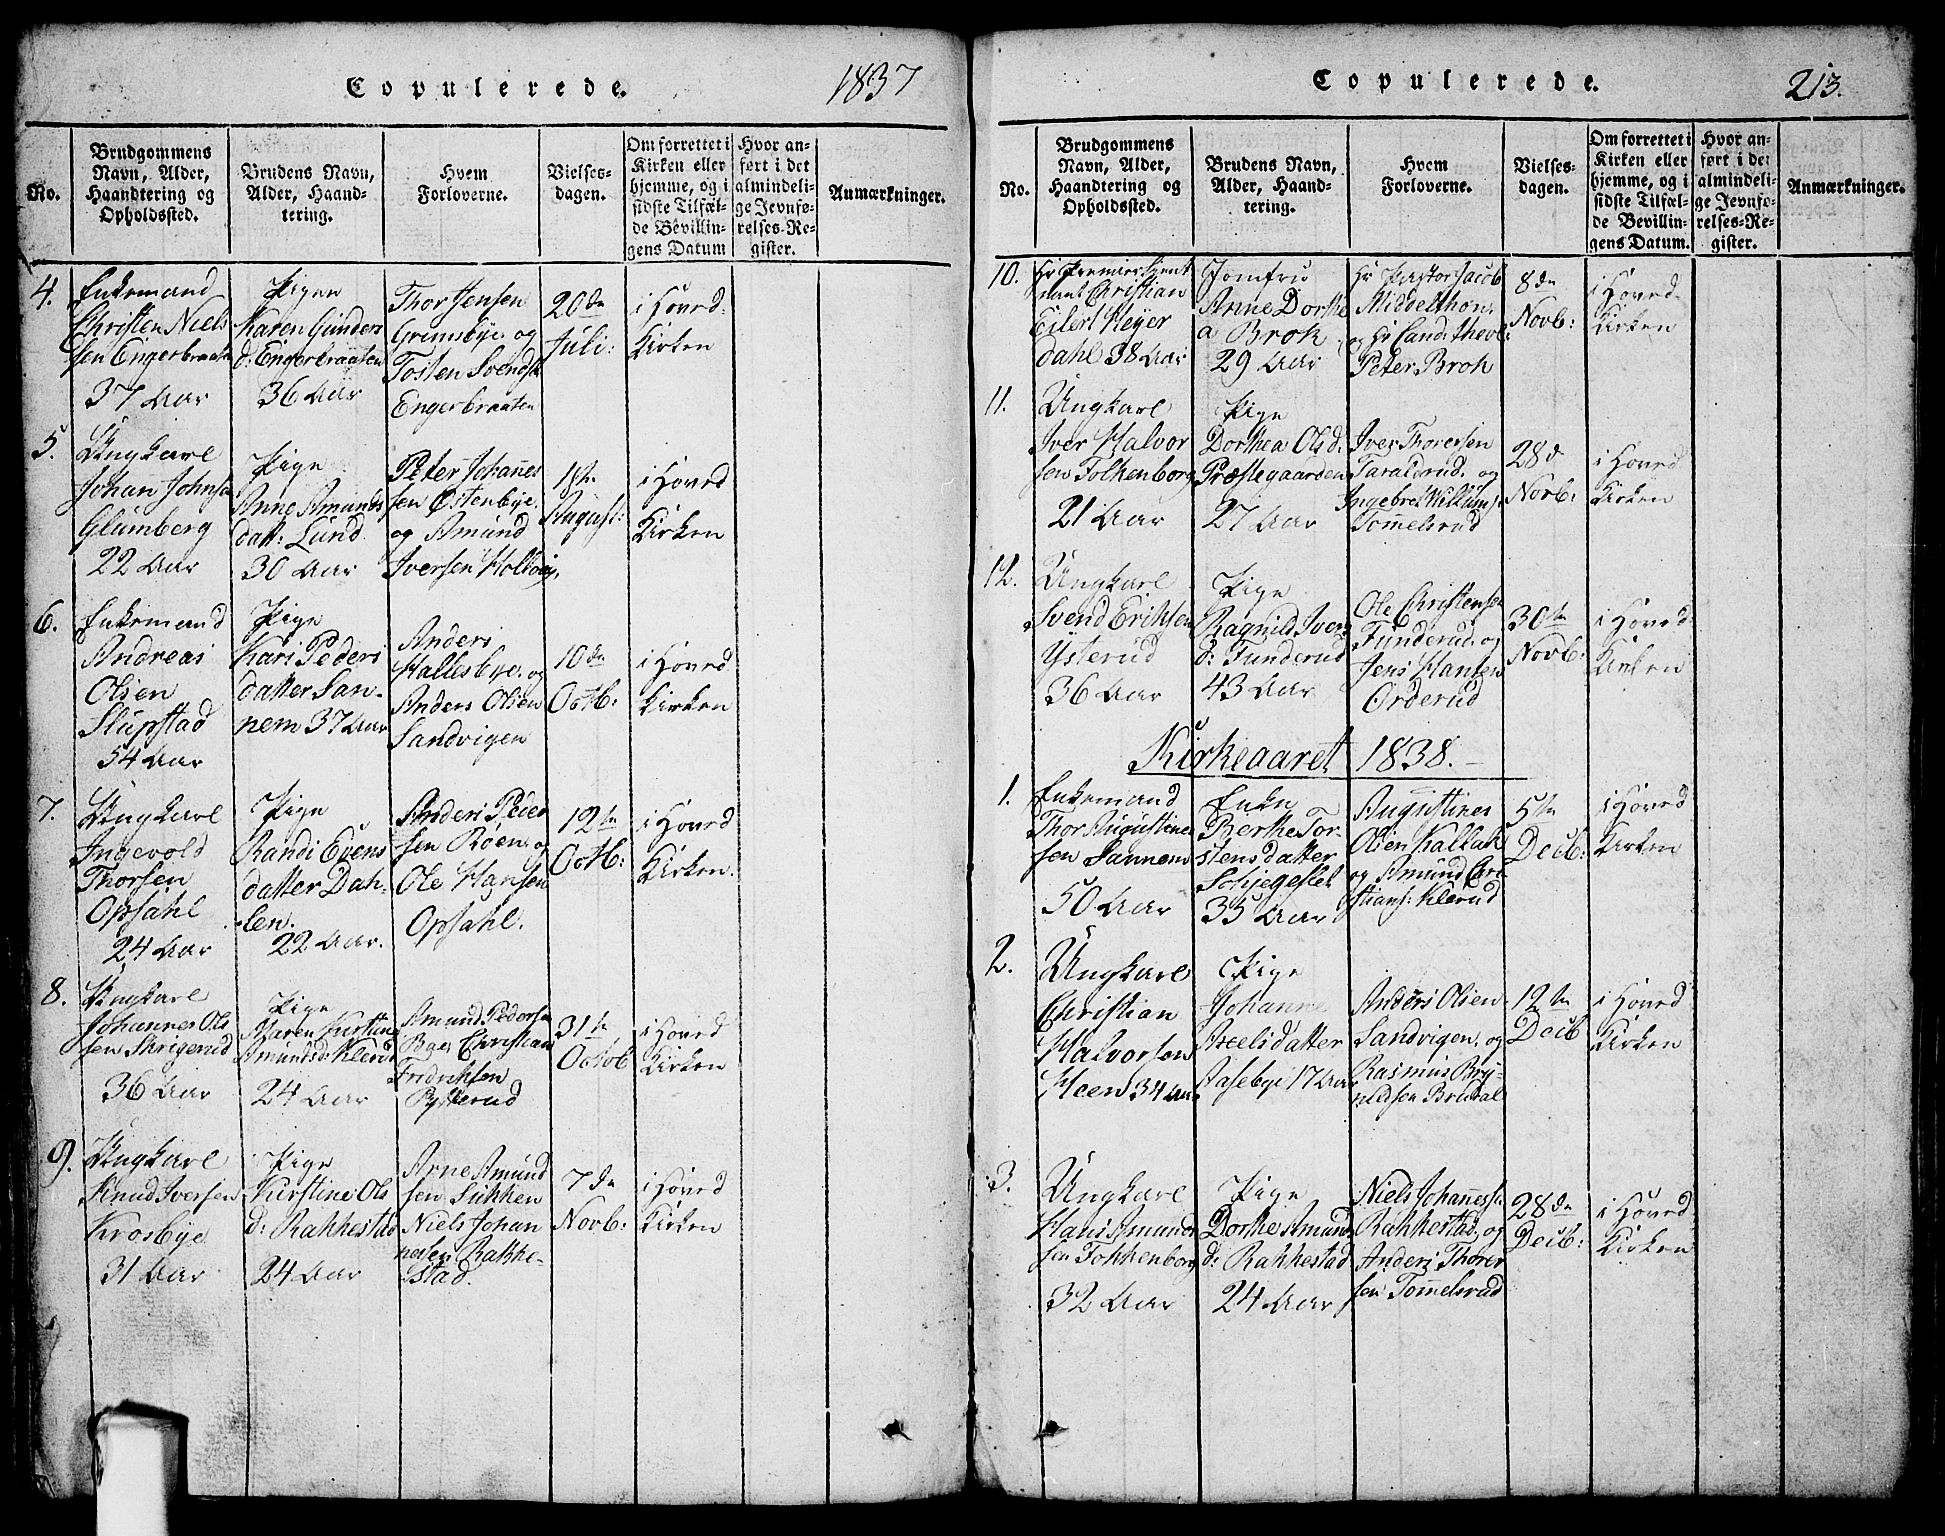 Copulerede. 1837
No.
Brudgommens Navn, Alder, Haandtering og Opholdssted.
Brudens Navn, Alder, Haandtering.
Hvem Forloverne.
Vielses-dagen.
Om forrettet i Kirken eller hjemme, og i sidste Tilfælde Bevillingens Datum
Hvor anført i det almindelige Jevnførelses-Register.
Anmærkninger.
4.
Enkemand
Christen Niels
sen Engerbraaten
37 Aar
Pigen
Karen Gunders
d: Engerbraaten
36 Aar
Thor Jensen
Grimsbye og
Tosten Svends
Engerbraaten
20de
Juli:
i Hoved
Kirken
5.
Ungkarl
Johan Johnsen
Glumberg
22 Aar
Pige
Anne Amunds
datt: Lund
30 Aar
Peter Johannes
sen Østenbye.
og Amund
Iversen Holtvig.
18te
August:
i Hoved
Kirken
6.
Enkemand
Andreas
Olsen
Slupstad
54 Aar
Pige
Kari Peders
datter San-
nem 37 Aar
Anders
Hallesbye. og
Anders Olsen
Sandvigen
10de
Octb:
i Hoved
Kirken
7.
Ungkarl
Ingevold
Thorsen
Opsahl
24 Aar
Pige
Randi Evens
datter Dah-
len.
22 Aar.
Anders Peder
sen Røen og
Ole Hansen
Opsahl.
12te
Octb:
i Hoved
Kirken.
8.
Ungkarl
Johannes Ols
sen Skrigerud
36 Aar
Pige
Maren Kirstine
Amundsd: Klerud
24 Aar
Amund Pedersen
Bæs Christian
Fredriksen
Rytterud
31te
Octob
i Hoved
Kirken
9.
Ungkarl
Knud Iversen
Krosbye
31 Aar
Pige
Kirstine Ols
d: Rakkestad
24 Aar
Arne Amund
sen Sukken
Niels Johan
nesen Rakke-
stad.
7de
Novb:
i Hoved
Kirken
Copulerede. 213.
No.
Brudgommens Navn, Alder, Haandtering og Opholdssted.
Brudens Navn, Alder, Haandtering.
Hvem Forloverne.
Vielses-dagen.
Om forrettet i Kirken eller hjemme, og i sidste Tilfælde Bevillingens Datum.
Hvor anført i det almindelige Jevnførelses-Register.
Anmærkninger.
10.
Hr Premier Lieut
nant Christian
Eilert Meyer
dahl 38 Aar
Jomfru
Anne Dorthe
a Brok
29 Aar
Hr Pastor Jacob
Middelthon
og Hr Cand: theol:
Peter Brok
8de
Novb:
i Hoved
Kirken
11.
Ungkarl
Iver Halvor
sen Folkenborg
21 Aar
Pige
Dorthea Olsd:
Præstegaarden
27 Aar
Iver Thoresen
Taraldrud. og
Ingebret Willums:
Tomelsrud
28de
Novb:
i Hoved
Kirken
12.
Ungkarl
Svend Eriksen
Ysterud
36 Aar
Pige
Ragnild Ivers
d: Funderud
43 Aar
Ole Christensen
Funderud. og
Jens Hansen
Orderud
30te
Novb:
i Hoved
Kirken
Kirkeaaret 1838.
1.
Enkemand
Thor Augustines
sen Sannem
50 Aar
Enke
Berthe Tor-
stensdatter
Schjegeslet
35 Aar
Augustines
Olsen Kallak
og Amund Cri
stians: Klerud
5te
Decb:
i Hoved
Kirken
2.
Ungkarl
Christian
Halvorsen
Heen 34 Aar
Pige
Johanne
Axelsdatter
Aasebye 17 Aar
Anders Olsen
Sandvigen. og
Rasmus Bry-
nildsen Brudal
12te
Decb
i Hoved
Kirken
3.
Ungkarl
Hans Amund
sen Folkenborg
32 Aar
Pige
Dorthe Amunds
d: Rakkestad
24 Aar
Niels Johannessen
Rakkestad. og
Anders Thorer
sen Tomelsrud
28de
Decb:
i Hoved
Kirken